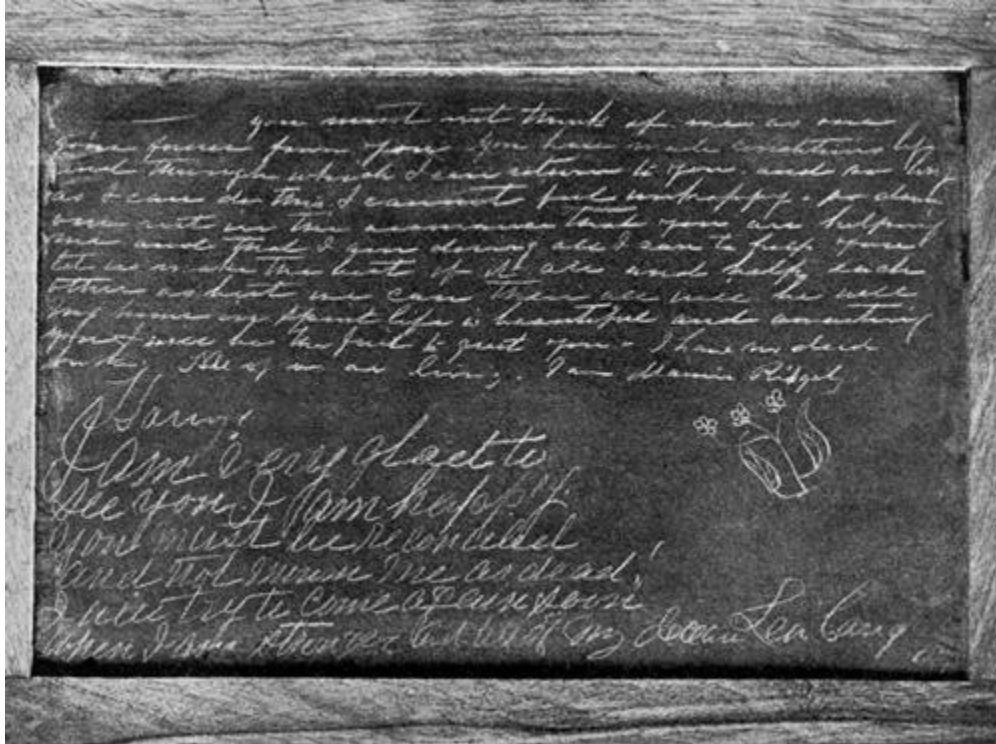 you must not think of me as one
gone forever from you. You have made conditions by
and through which I can return to you and so long
as I can do this I cannot feel unhappy.
in the assurance that you are helping
me and that I am doing all I can to help you
let us make the best of it all and help each
other as best we can then all will be well
my home in spirit life is beautiful and awaiting
you I will be the first to greet you. I have no dead
All of us are living. I am Mamie Ridgely
Harry
I am very glad to
see you I am happy.
you must be reconciled
and not mourn me as dead,
I will try to come again soon
when I am stronger my